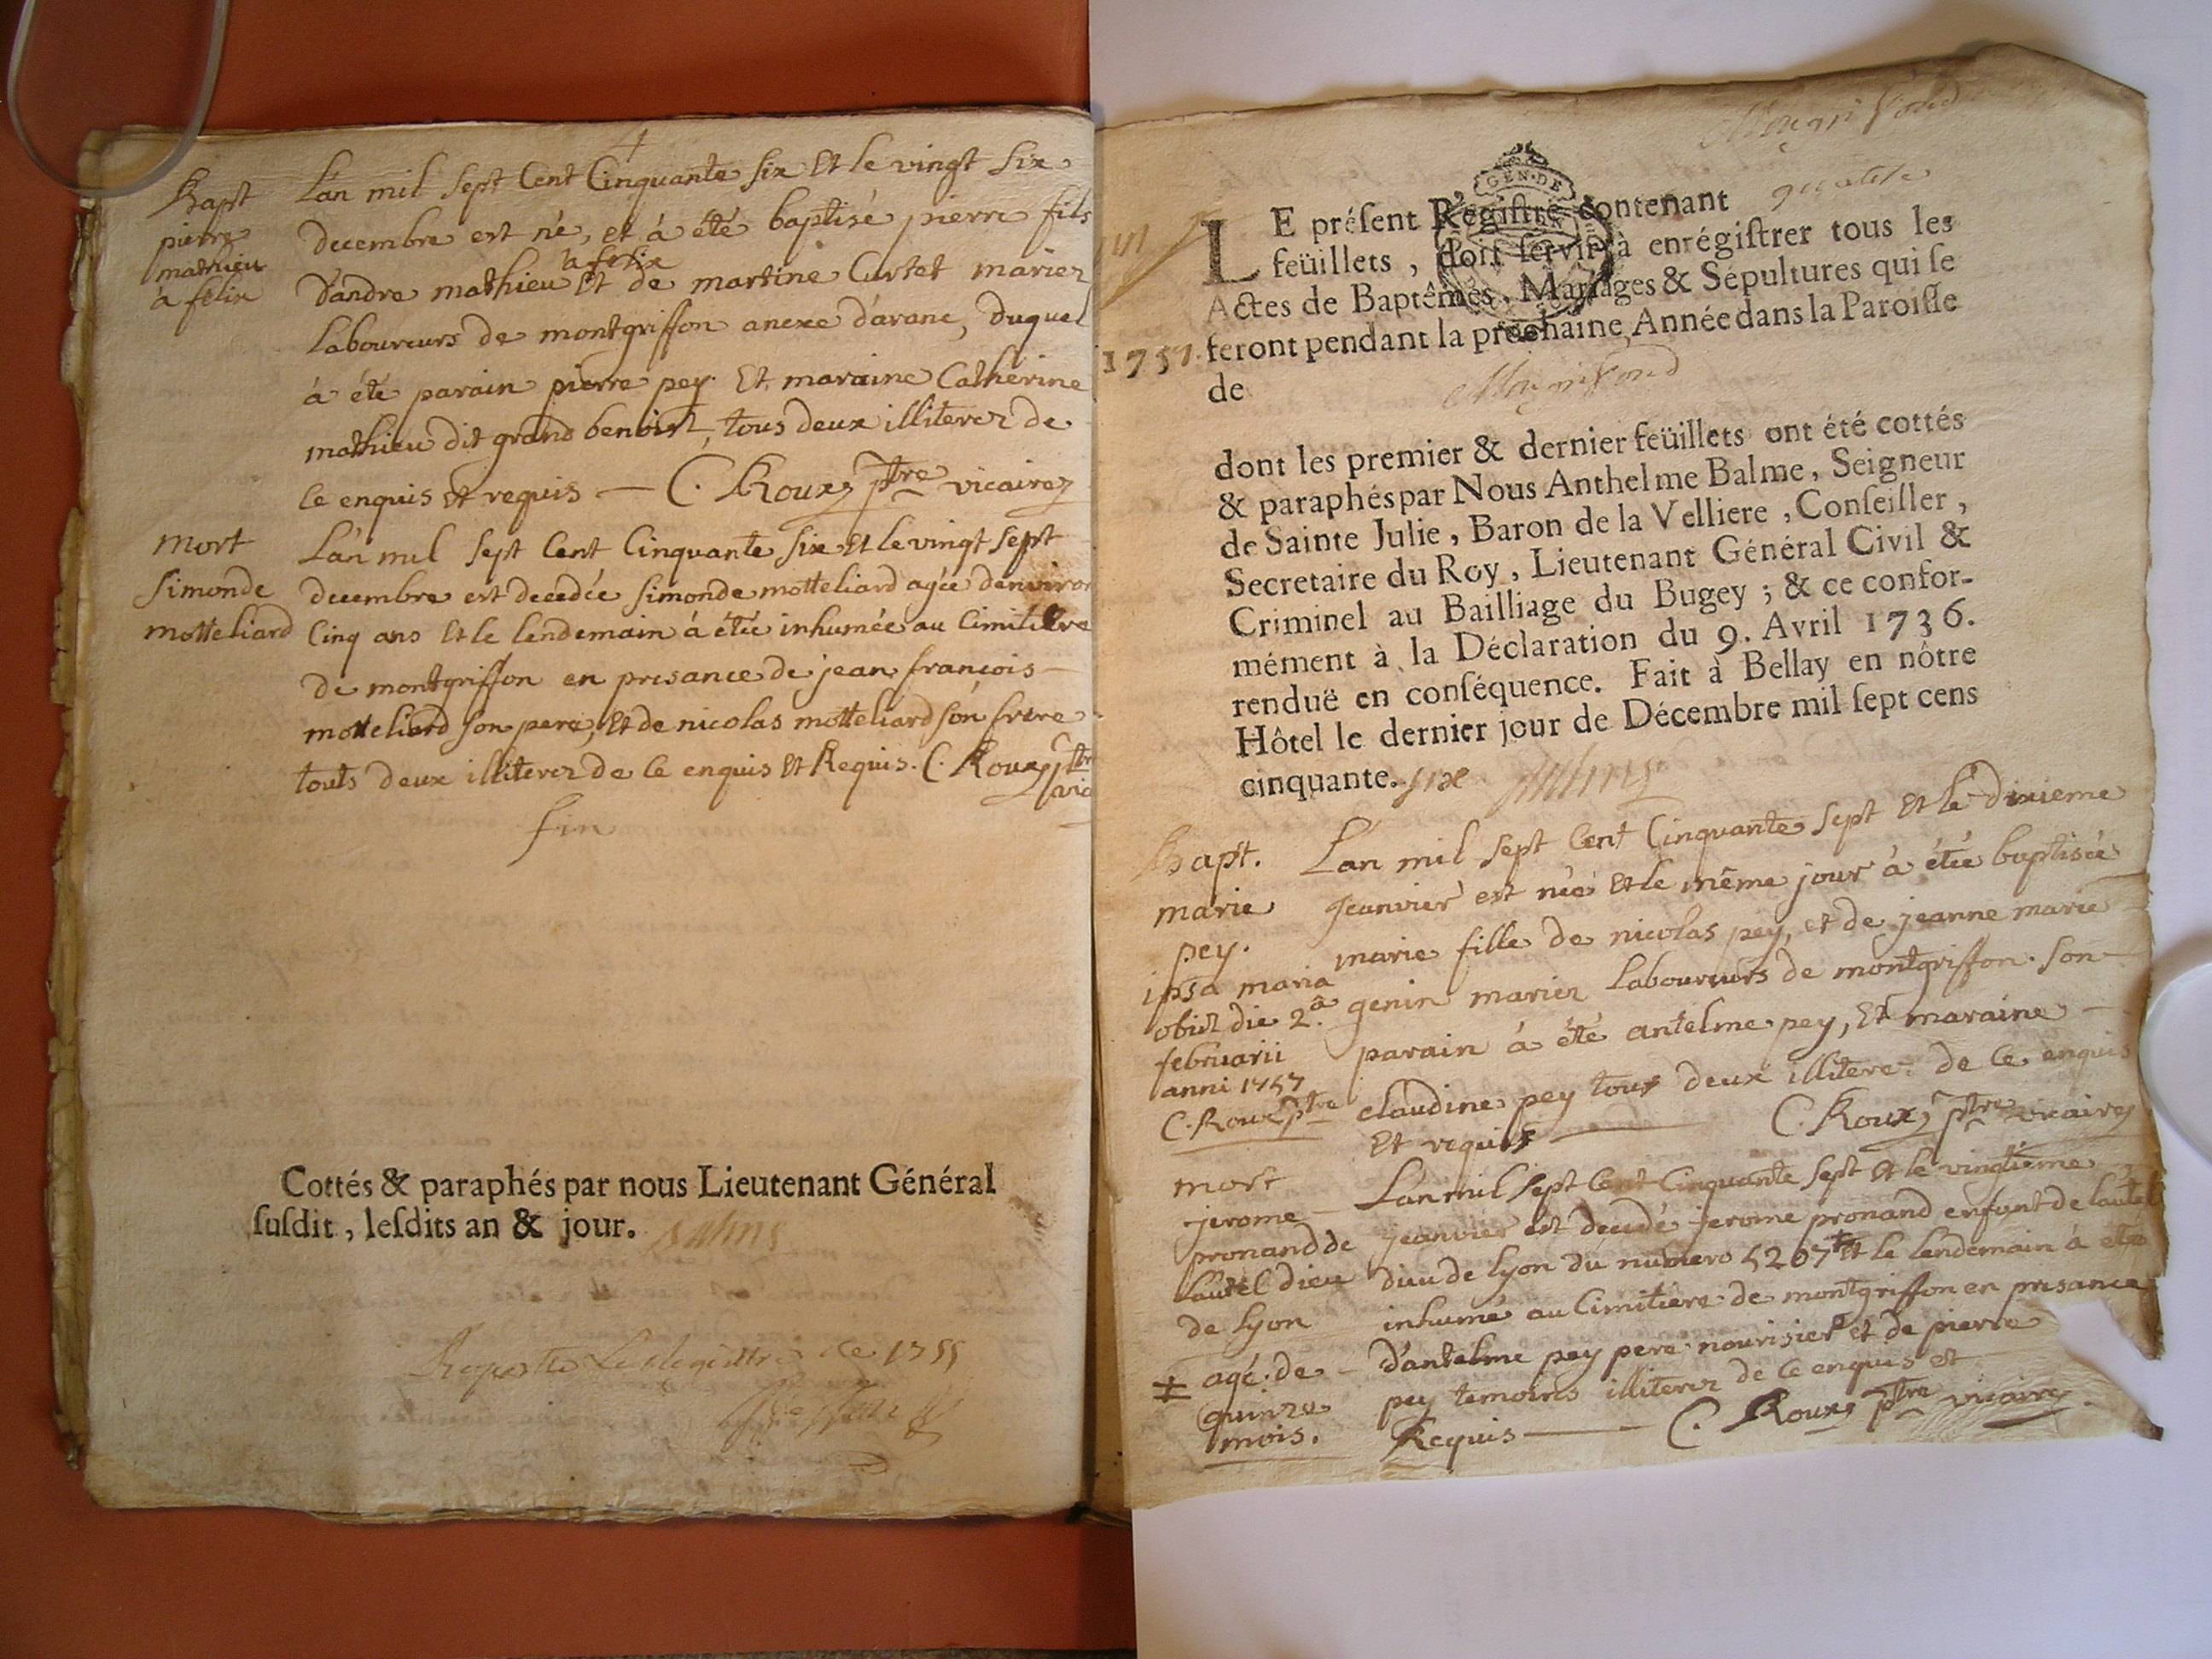 Bapt
pierre
mathieu
à felix
L'an mil sept Cent Cinquante six Et le vingt six
decembre est né, et à été baptisé pierre fils
à felix
D'andre mathieu Et de martine Curtet mariez
Laboureurs de montgriffon anexe d'aranc, Duquel
à été parain pierre pey. Et maraine Catherine
mathieu dit grand benoist, tous deux illiterez de
Ce enquis et requis — C. Roux ptre vicaire
mort
Simonde
motteliard
L'an mil sept Cent Cinquante six Et le vingt sept
decembre est decedée simonde motteliard agée d'environ
Cinq ans Et le lendemain à étée inhumée au Cimitiere
de montgriffon en presance de jean françois
motteliard son pere, Et de nicolas motteliard son frere
touts deux illiterez de Ce enquis Et Requis. C. Roux ptre
vic
fin
Cottés & paraphés par nous Lieutenant Général
susdit, lesdits an & jour.
de 1755
GEN. DE
LE présent Régistre contenant
feüillets, doit servir à enrégistrer tous les
Actes de Baptêmes, Mariages & Sépultures qui se
1757. feront pendant la prochaine Année dans la Paroisse
de
dont les premier & dernier feüillets ont été cottés
& paraphés par Nous Anthelme Balme, Seigneur
de Sainte Julie, Baron de la Velliere, Conseiller,
Secretaire du Roy, Lieutenant Général Civil &
Criminel au Bailliage du Bugey ; & ce confor-
mément à la Déclaration du 9. Avril 1736.
renduë en conséquence. Fait à Bellay en nôtre
Hôtel le dernier jour de Décembre mil sept cens
cinquante. six
Bapt.
marie
pey.
ipsa maria
obiit die 2.a
februarii
anni 1757
C. Roux ptre
L'an mil sept Cent Cinquante sept Et le dixieme
jeanvier est née Et le même jour à étée baptisée
marie fille de nicolas pey, et de jeanne marie
genin mariez Laboureurs de montgriffon. son
parain à été antelme pey, Et maraine
claudine pey tous deux illitere. de Ce enquis
Et requis — C. Roux ptre vicaire
mort
jerome
pronand de
L'autel dieu
de lyon
‡ agé de
quinze
mois.
L'an mil sept Cent Cinquante sept Et le vingtieme
jeanvier est decedé jerome pronand enfant de l'autel
dieu de lyon du numero 5207 ‡ Et le lendemain à été
inhumé au Cimitiere de montgriffon en presance
D'antelme pey pere nourisier et de pierre
pey temoins illiterez de Ce enquis et
Requis — C. Roux ptre vicaire